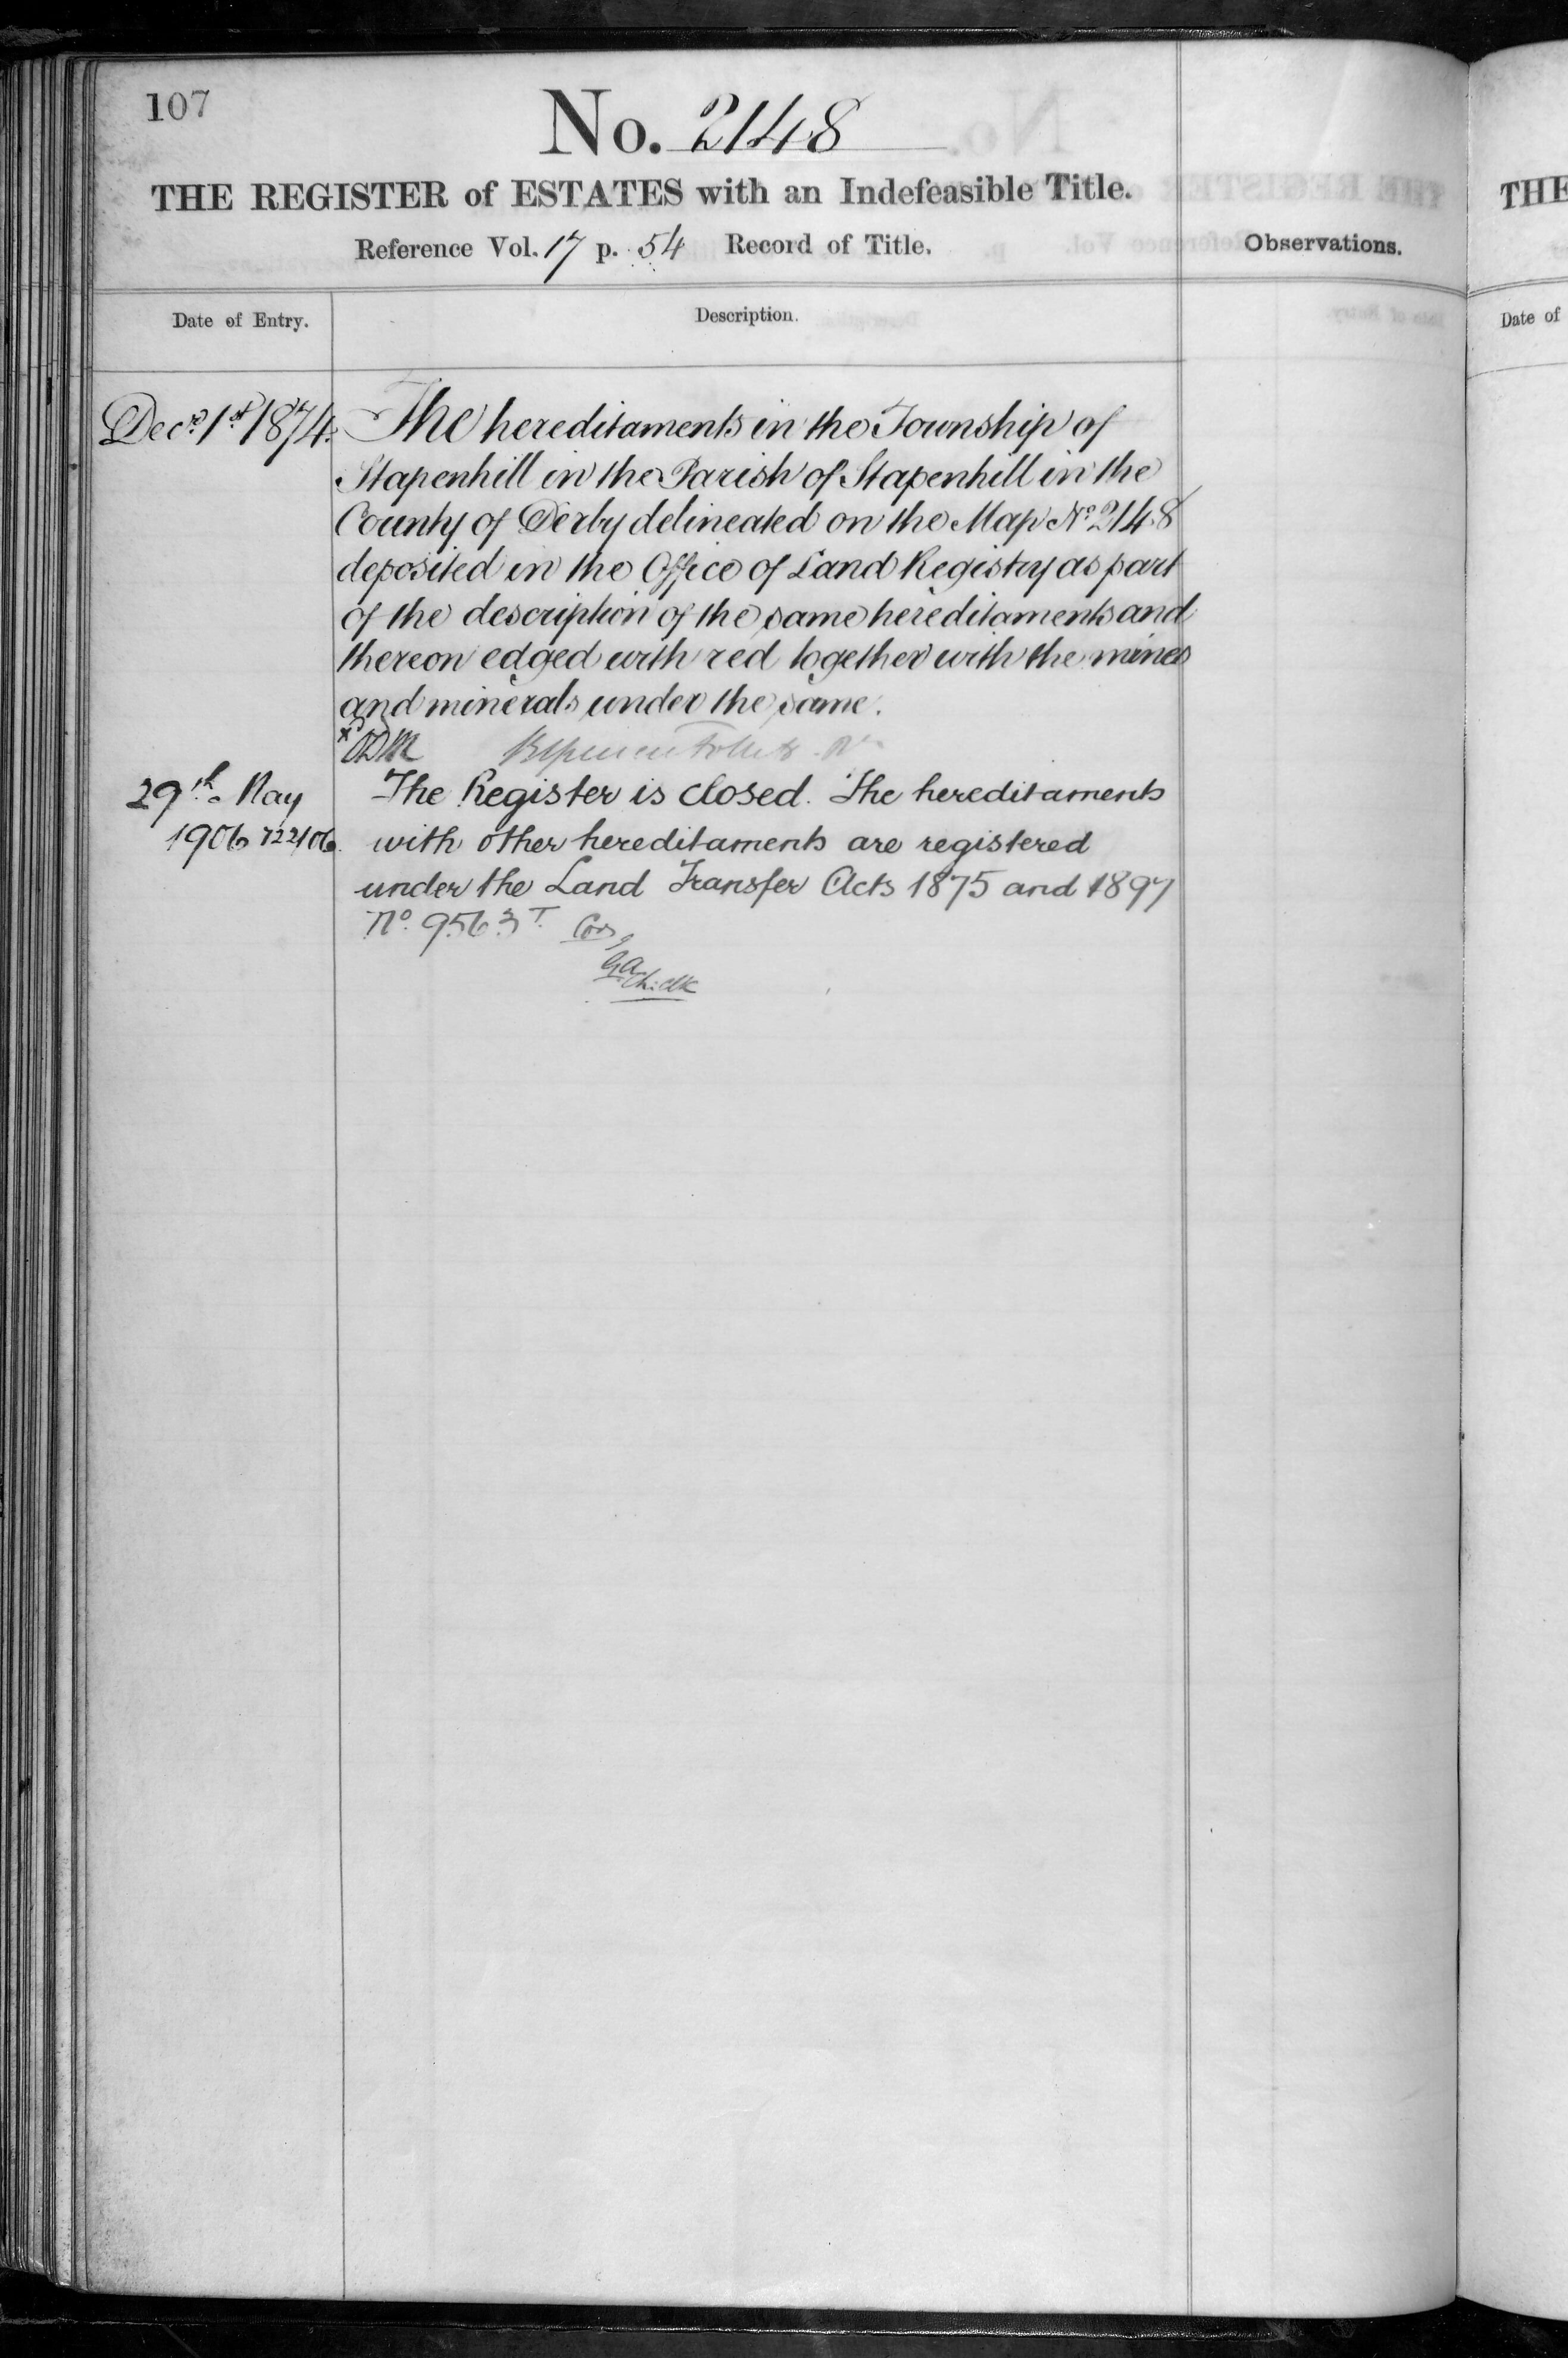 107
No. 2148
THE REGISTER of ESTATES with an Indefeasible Title.
Reference Vol. 17 p. 54 Record of Title.
Observations.
Date of Entry.
Description.
Decr 1st 1874.
The hereditaments in the Township of
Stapenhill in the Parish of Stapenhill in the
County of Derby delineated on the Map No 2148
deposited in the Office of Land Registry as part
of the description of the same hereditaments and
thereon edged with red together with the mines
and minerals under the same.
29th May
1906 722/06.
The Register is closed. The hereditaments
with other hereditaments are registered
under the Land Transfer Acts 1875 and 1897
No. 9563T
THE
Date of